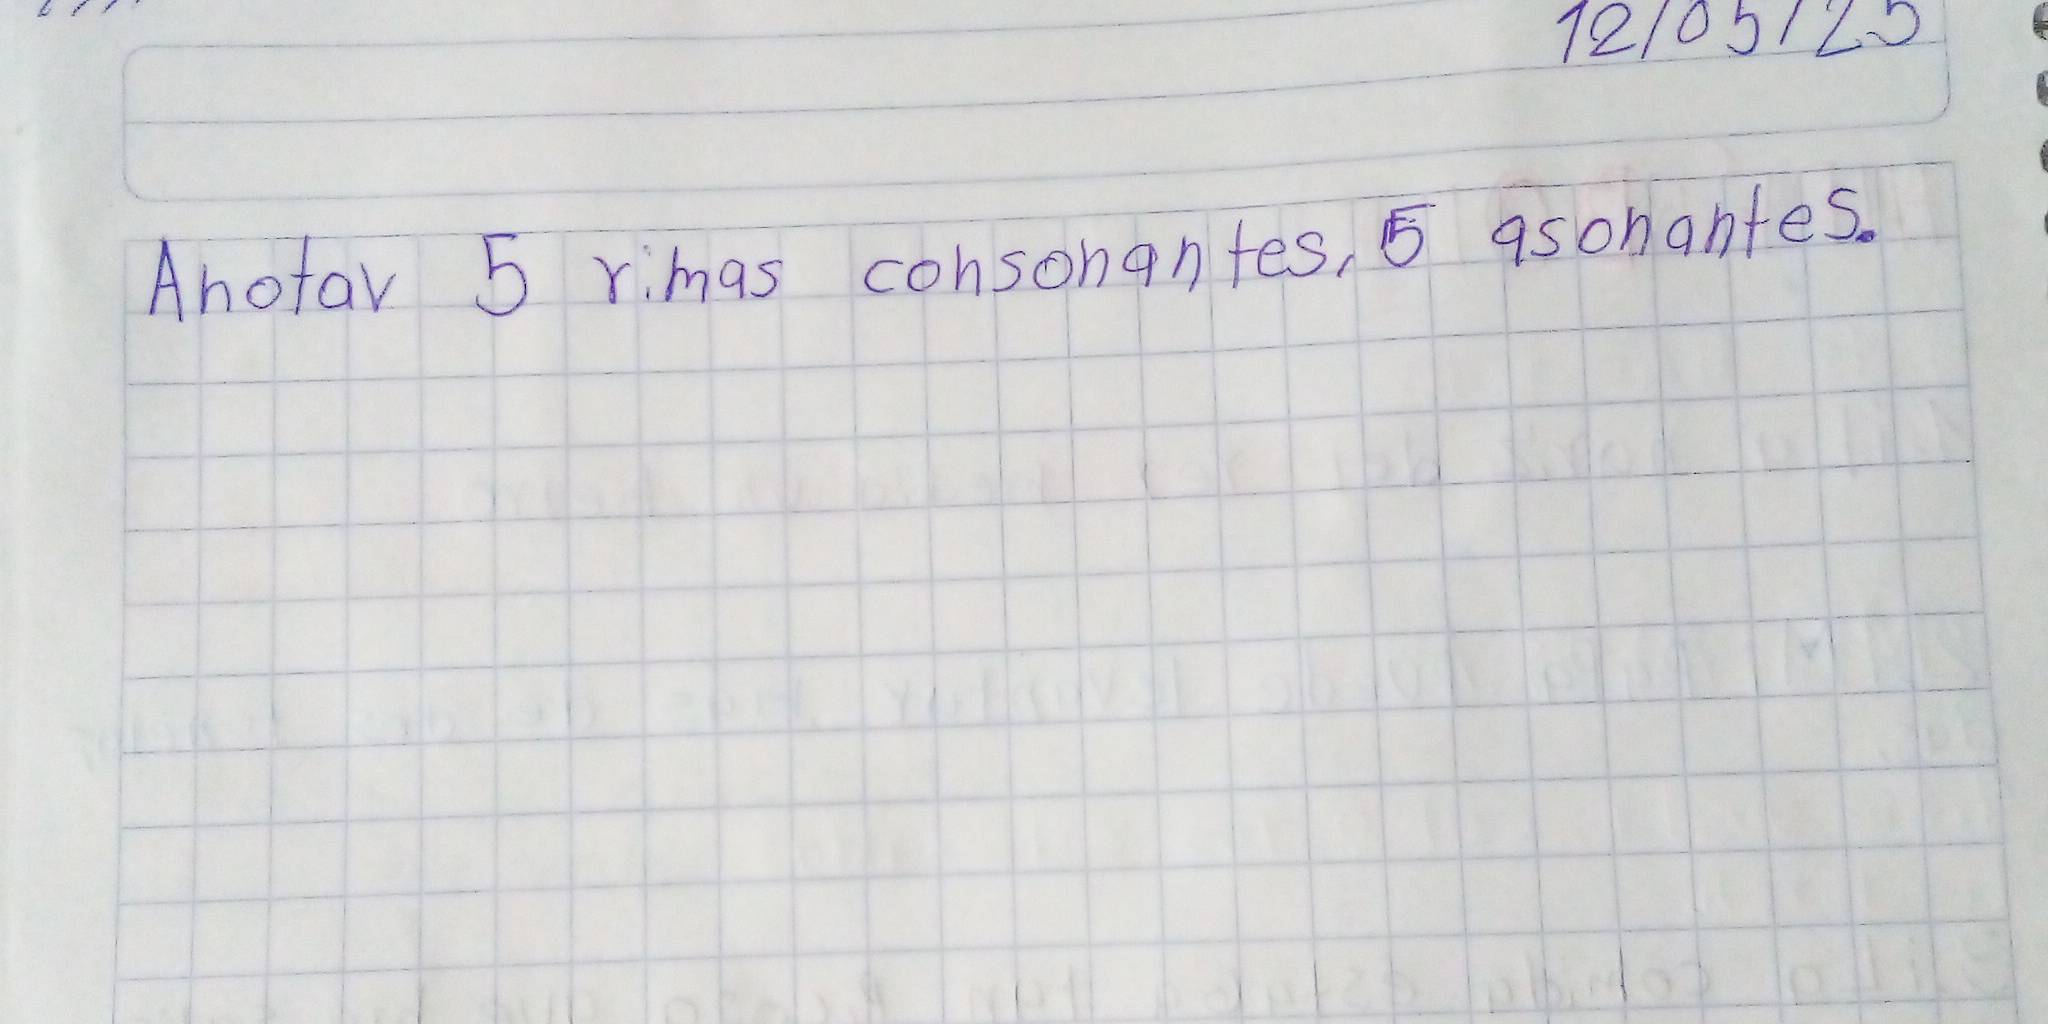 12/05/25
Anotar 5 rimas consonantes, 5 asonantes.